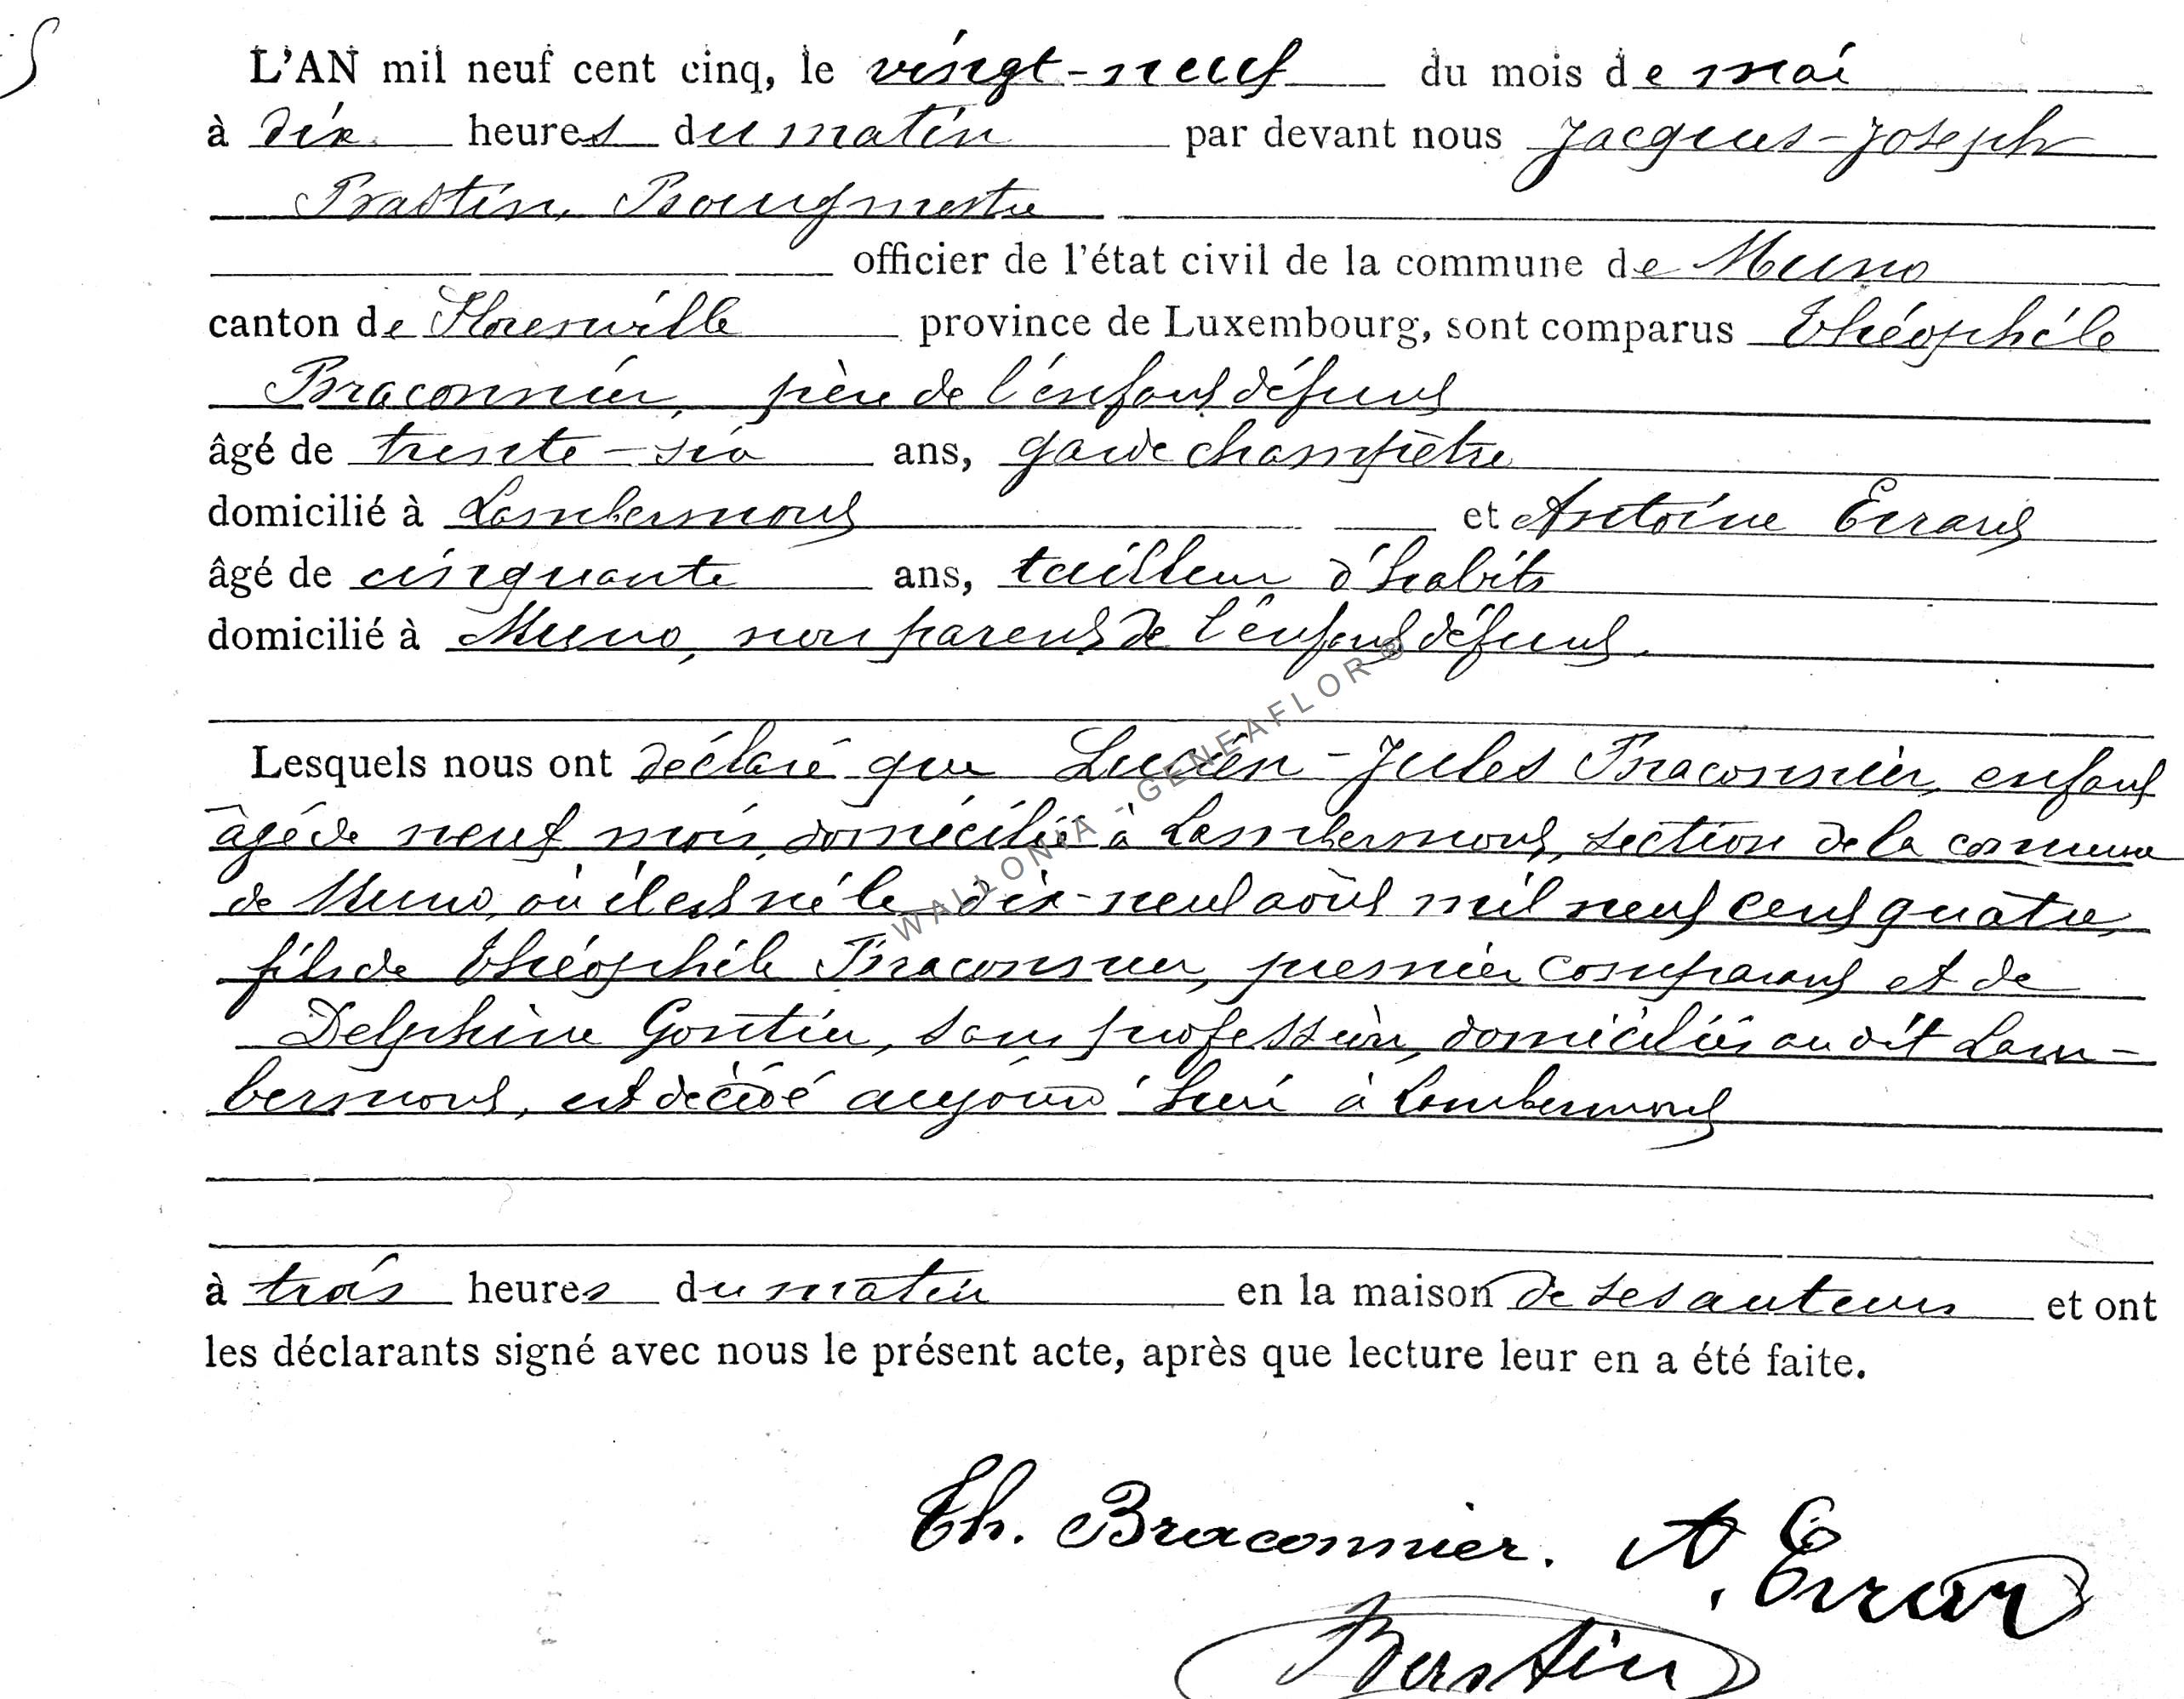 L'AN mil neuf cent cinq, le vingt-neuf du mois de mai
à dix heures du matin par devant nous Jacques-Joseph
Bastin, Bourgmestre
officier de l'état civil de la commune de Muno
canton de Florenville province de Luxembourg, sont comparus Théophile
Braconnier, père de l'enfant défunt
âgé de trente-six ans, garde champêtre
domicilié à Lambermont et Antoine Errard
âgé de cinquante ans, tailleur d'habits
domicilié à Muno, non parent de l'enfant défunt.
Lesquels nous ont déclaré que Lucien-Jules Braconnier, enfant
âgé de neuf mois, domicilié à Lambermont, section de la commune
de Muno, où il est né le dix-neuf août mil neuf cent quatre,
fils de Théophile Braconnier, premier comparant et de
Delphine Gontier, sans profession, domiciliés au dit Lam-
bermont, est décédé aujourd'hui à Lambermont
à trois heures du matin en la maison de ses auteurs et ont
les déclarants signé avec nous le présent acte, après que lecture leur en a été faite.
Th. Braconnier. A. Errard
Bastin
WALLONIA - GENEAFLOR ®